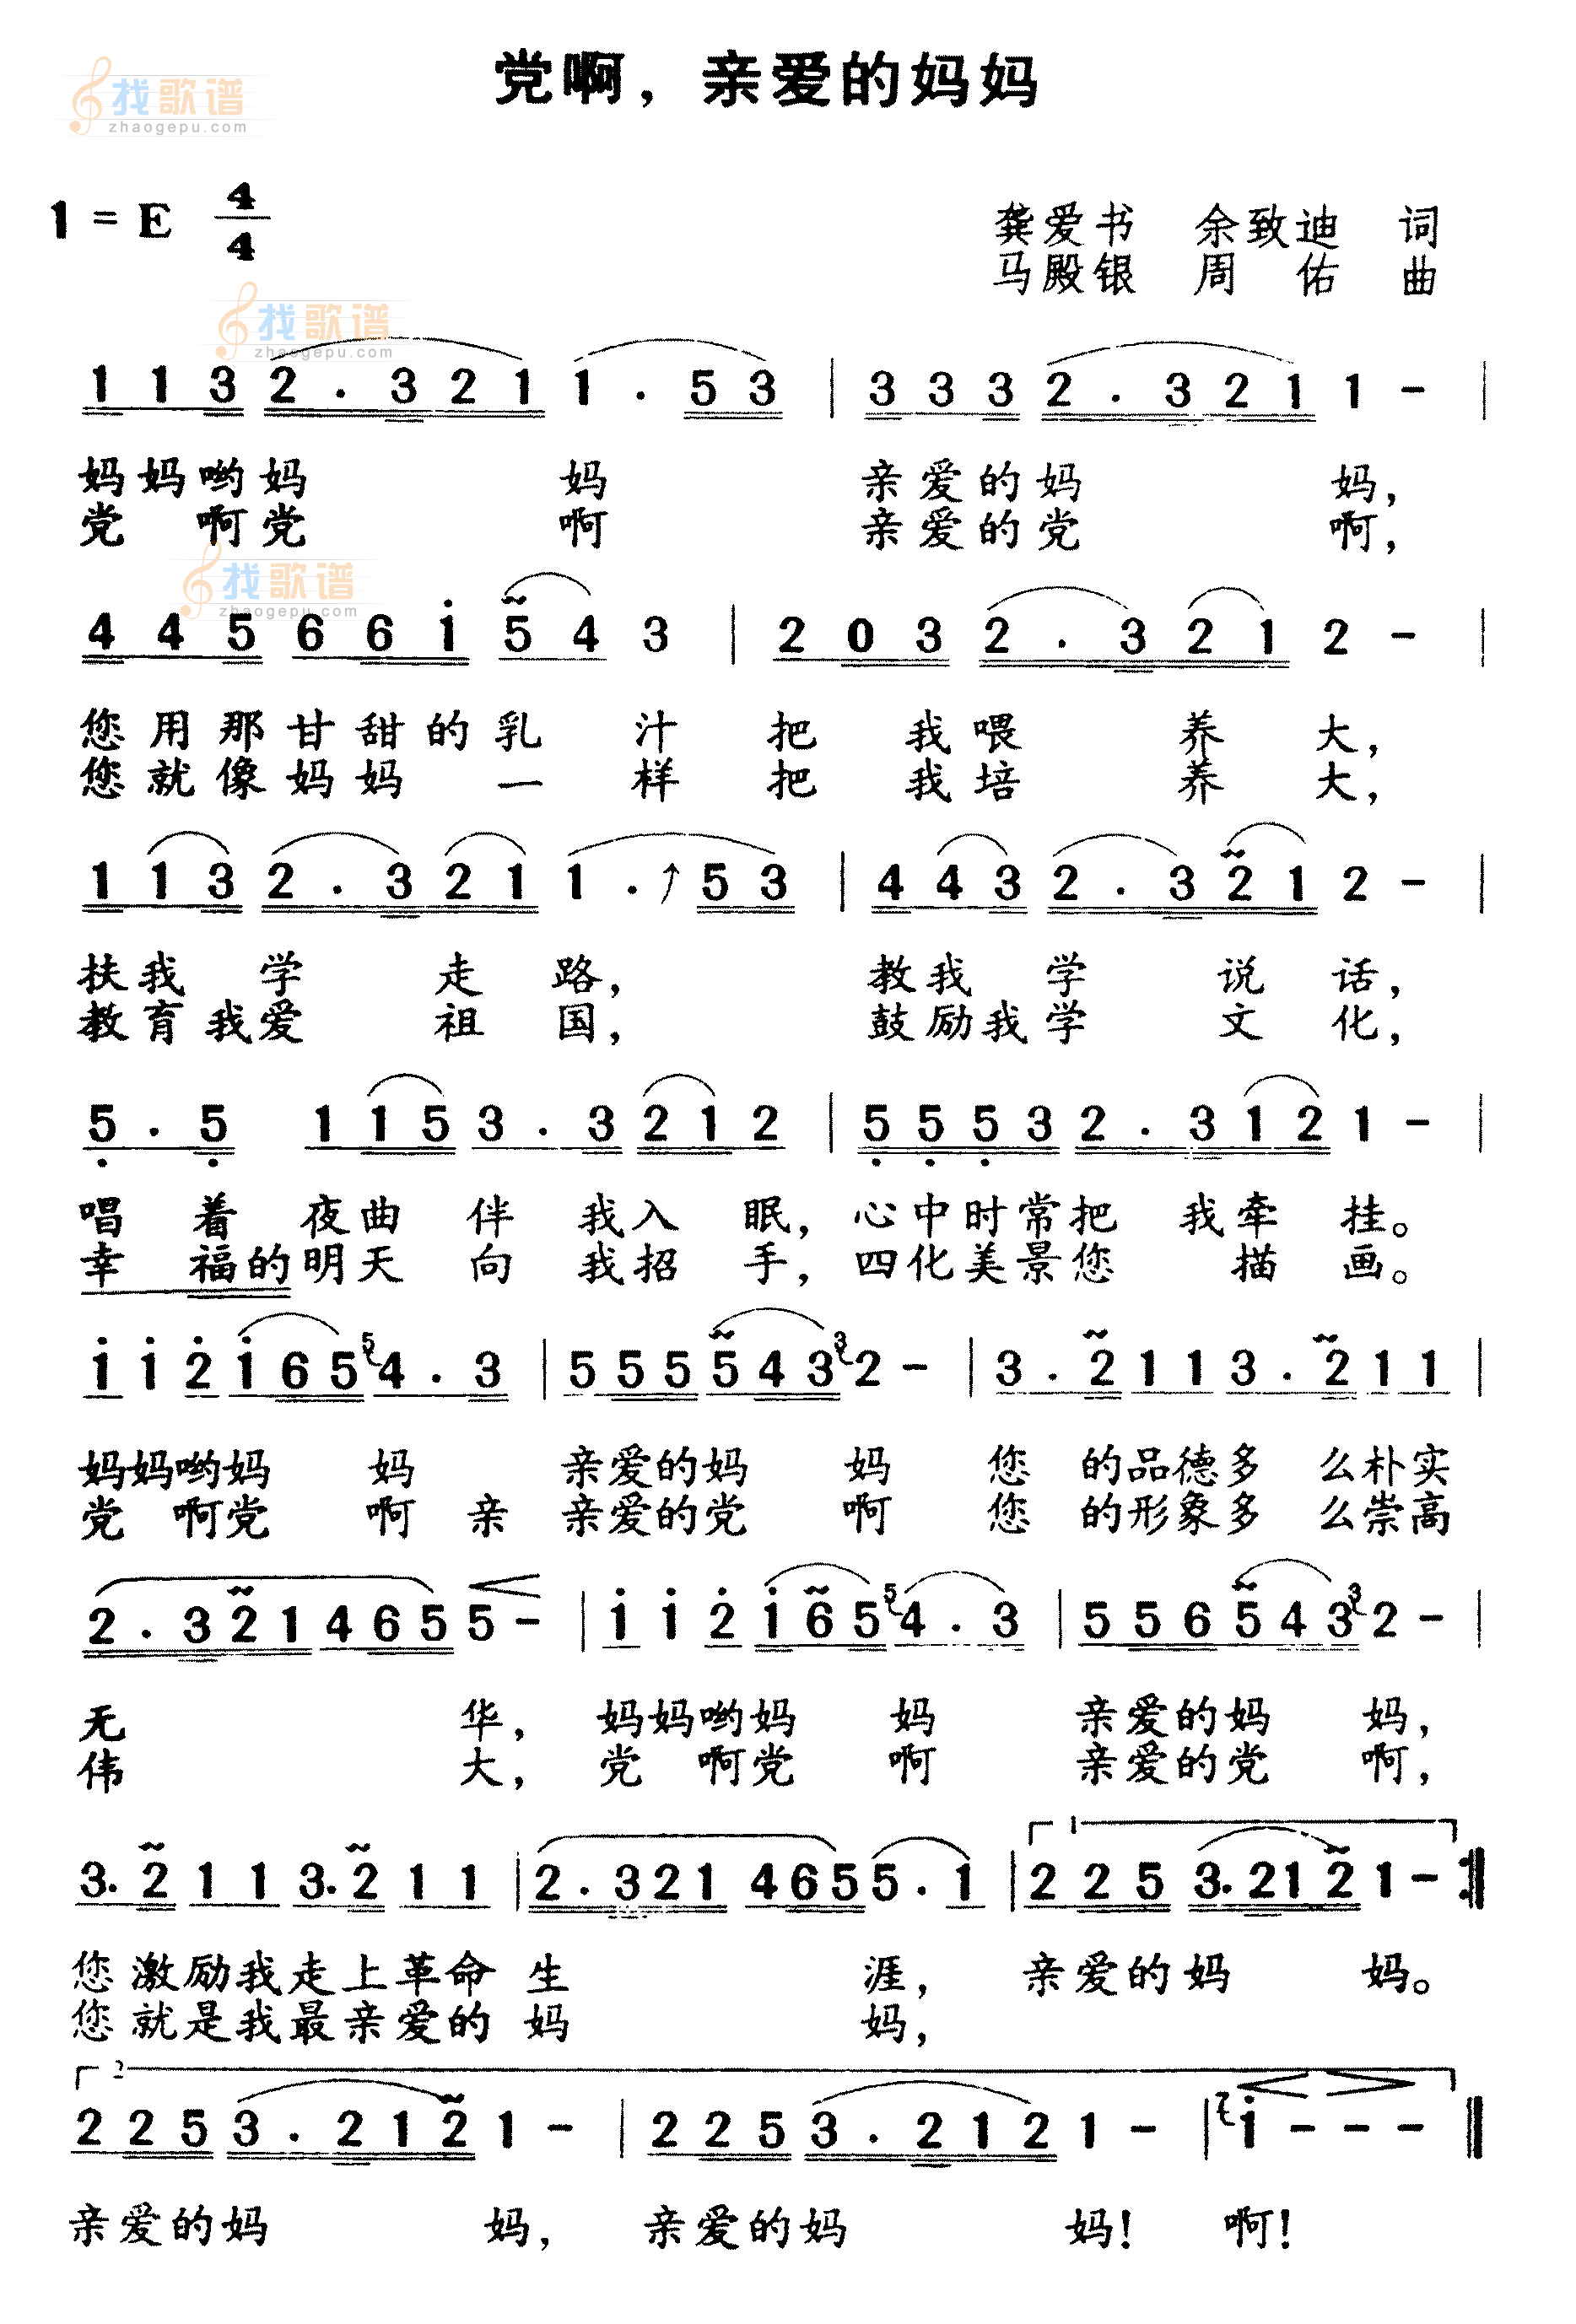 党啊，亲爱的妈妈
找歌谱
zhaogepu.com
1 = E 4/4
龚爱书 余致迪 词
马殿银 周 佑 曲
找歌谱
zhaogepu.com
1 1 3 2 . 3 2 1 1 . 5 3 | 3 3 3 2 . 3 2 1 1 - |
妈妈哟妈 妈 亲爱的妈 妈，
党 啊党 啊 亲爱的党 啊，
找歌谱
zhaogepu.com
4 4 5 6 6 i 5 4 3 | 2 0 3 2 . 3 2 1 2 - |
您用那甘甜的乳 汁 把 我喂 养 大，
您就像妈妈 一 样 把 我培 养 大，
1 1 3 2 . 3 2 1 1 . 5 3 | 4 4 3 2 . 3 2 1 2 - |
扶我 学 走 路， 教我 学 说 话，
教育我爱 祖 国， 鼓励我学 文 化，
5 . 5 1 1 5 3 . 3 2 1 2 | 5 5 5 3 2 . 3 1 2 1 - |
唱 着 夜曲 伴 我入 眠，心中时常把 我牵 挂。
幸 福的明天 向 我招 手，四化美景您 描 画。
i i 2 i 6 5 5 4 . 3 | 5 5 5 5 4 3 3 2 - | 3 . 2 1 1 3 . 2 1 1 |
妈妈哟妈 妈 亲爱的妈 妈 您 的品德多 么朴实
党 啊党 啊 亲 亲爱的党 啊 您 的形象多 么崇高
2 . 3 2 1 4 6 5 5 - | i i 2 i 6 5 5 4 . 3 | 5 5 6 5 4 3 3 2 - |
无 华，妈妈哟妈 妈 亲爱的妈 妈，
伟 大，党 啊党 啊 亲爱的党 啊，
3. 2 1 1 3. 2 1 1 | 2 . 3 2 1 4 6 5 5 . 1 | 1 2 2 5 3. 2 1 2 1 - :|
您激励我走上革命生 涯， 亲爱的妈 妈。
您就是我最亲爱的妈 妈，
2
2 2 5 3 . 2 1 2 1 - | 2 2 5 3 . 2 1 2 1 - | i - - - ||
亲爱的妈 妈， 亲爱的妈 妈！ 啊！